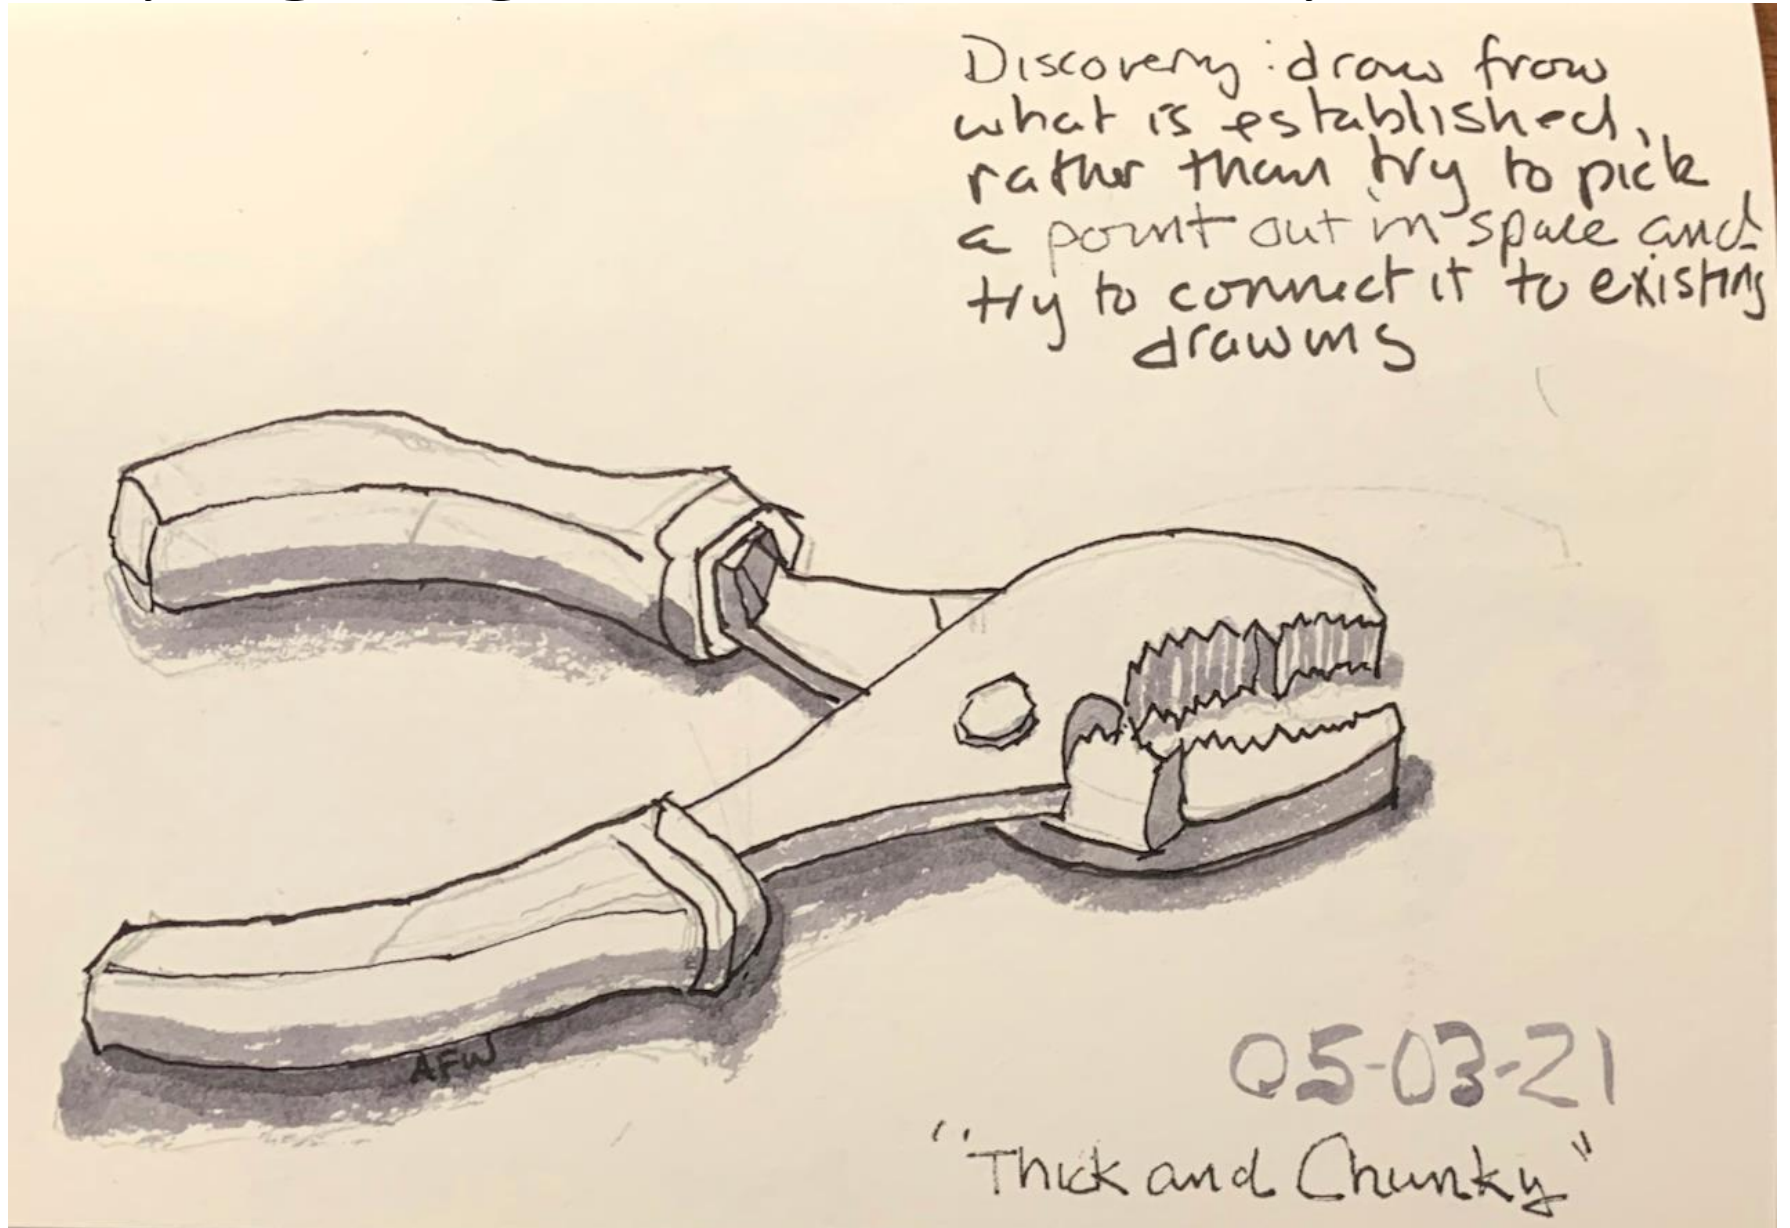 Discovery: draw from
what is established,
rather than try to pick
a point out in space and
try to connect it to existing
drawing
AFW
05-03-21
"Thick and Chunky"